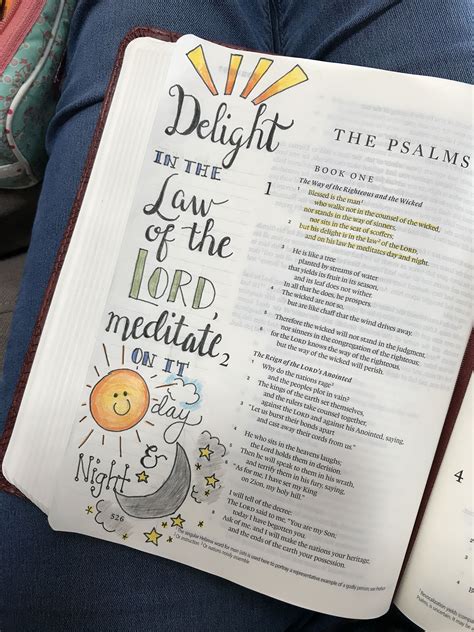 Delight
IN THE
Law
of the
LORD,
meditate
ON IT
day
&
Night
526
THE PSALMS
BOOK ONE
The Way of the Righteous and the Wicked
1
1 Blessed is the man
who walks not in the counsel of the wicked,
nor stands in the way of sinners,
nor sits in the seat of scoffers;
2 but his delight is in the law of the LORD,
and on his law he meditates day and night.
3 He is like a tree
planted by streams of water
that yields its fruit in its season,
and its leaf does not wither.
In all that he does, he prospers.
4 The wicked are not so,
but are like chaff that the wind drives away.
5 Therefore the wicked will not stand in the judgment,
nor sinners in the congregation of the righteous;
6 for the LORD knows the way of the righteous,
but the way of the wicked will perish.
2
The Reign of the LORD's Anointed
Why do the nations rage
and the peoples plot in vain?
The kings of the earth set themselves,
and the rulers take counsel together,
against the LORD and against his Anointed, saying,
"Let us burst their bonds apart
and cast away their cords from us."
4 He who sits in the heavens laughs;
the Lord holds them in derision.
5 Then he will speak to them in his wrath,
and terrify them in his fury, saying,
6 "As for me, I have set my King
on Zion, my holy hill."
7 I will tell of the decree:
The LORD said to me, "You are my Son;
today I have begotten you.
8 Ask of me, and I will make the nations your heritage,
and the ends of the earth your possession.
4